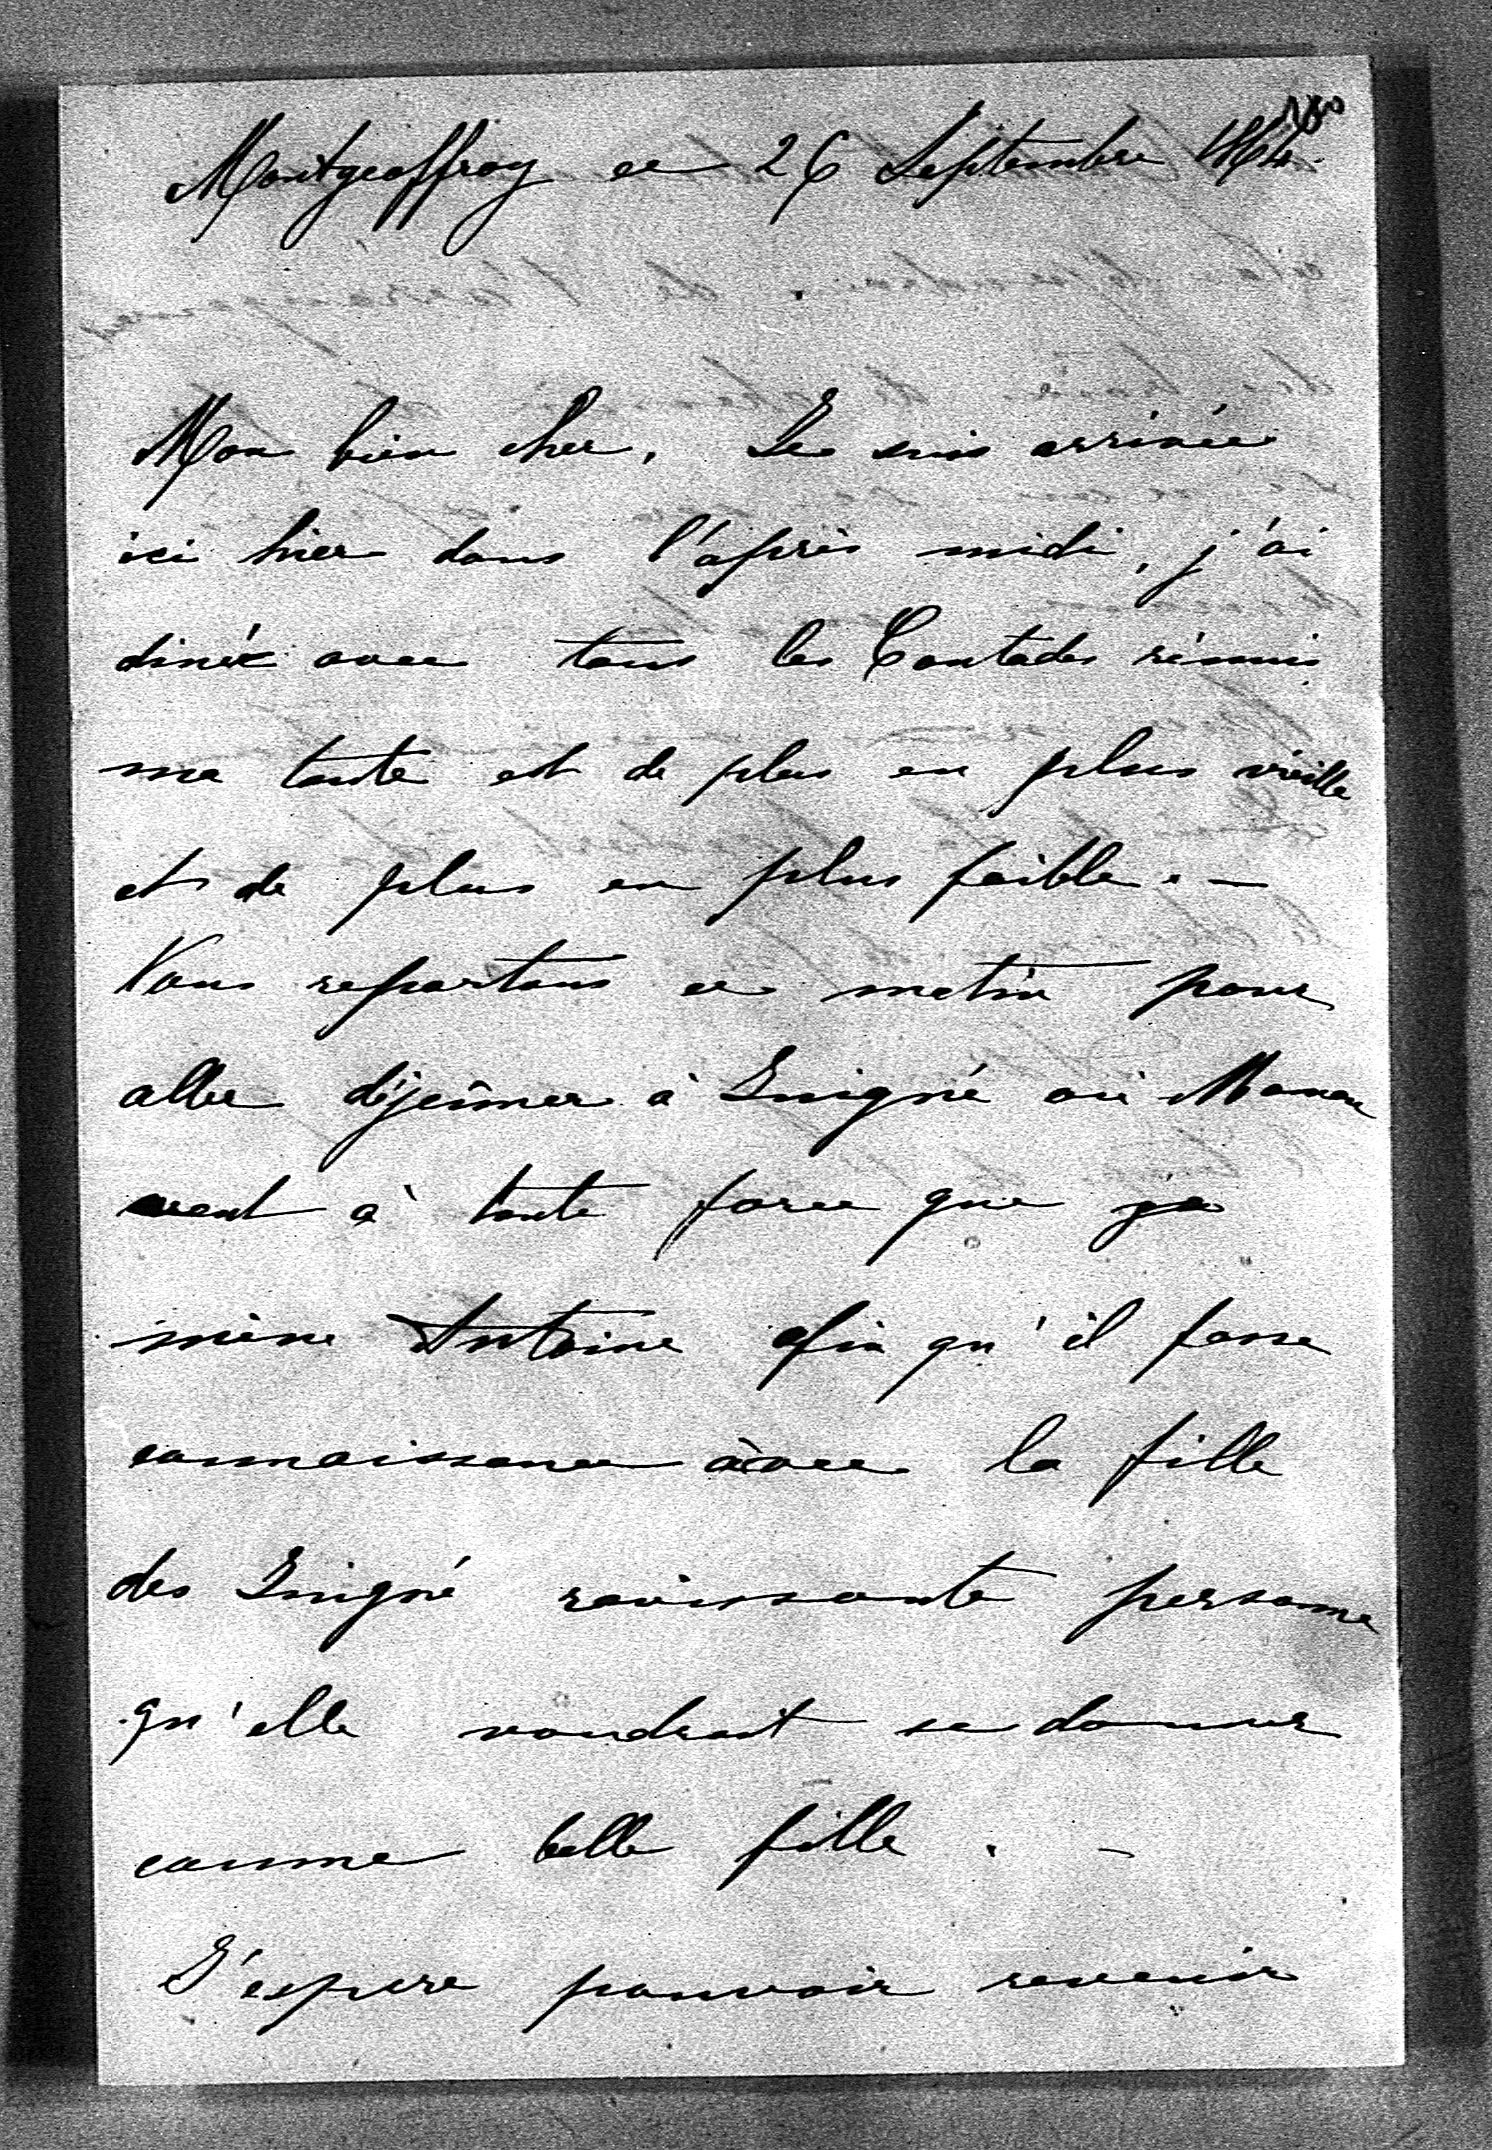 Montgeoffroy ce 26 Septembre
Mon bien cher, Je suis arrivée
ici hier dans l'après midi, j'ai
diné avec tous les Contades réunis
ma tante est de plus en plus vieille
et de plus en plus faible. —
Nous repartons ce matin pour
aller déjeûner à Guigné où Maman
veut à toute force que je
mène Antoine afin qu'il fasse
connaissance avec la fille
des Guigné ravissante personne
qu'elle voudrait se donner
comme belle fille. -
J'espere pouvoir revenir